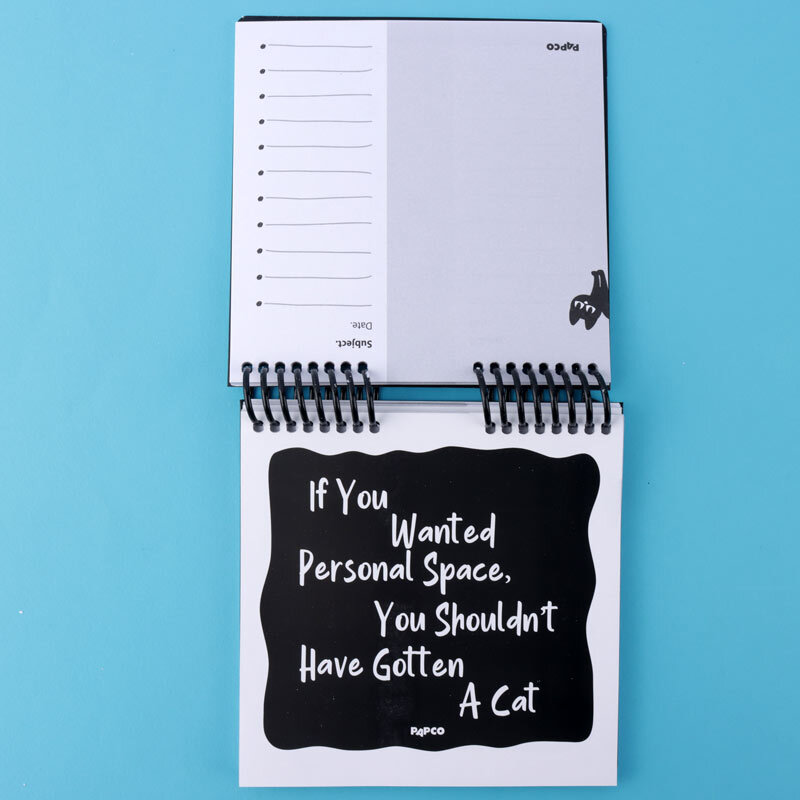 PAPCO
Date.
Subject.
If You
Wanted
Personal Space,
You Shouldn't
Have Gotten
A Cat
PAPCO